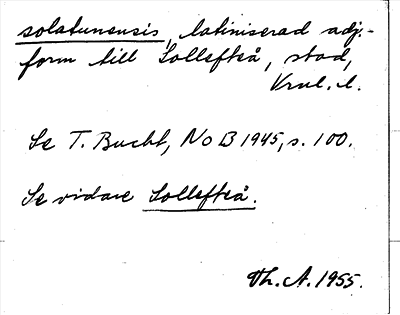 solatunensis, latiniserad adj.-
form till Sollefteå, stad,
Se T. Bucht, NoB 1945, s. 100.
Se vidare Sollefteå.
Th. A. 1955.